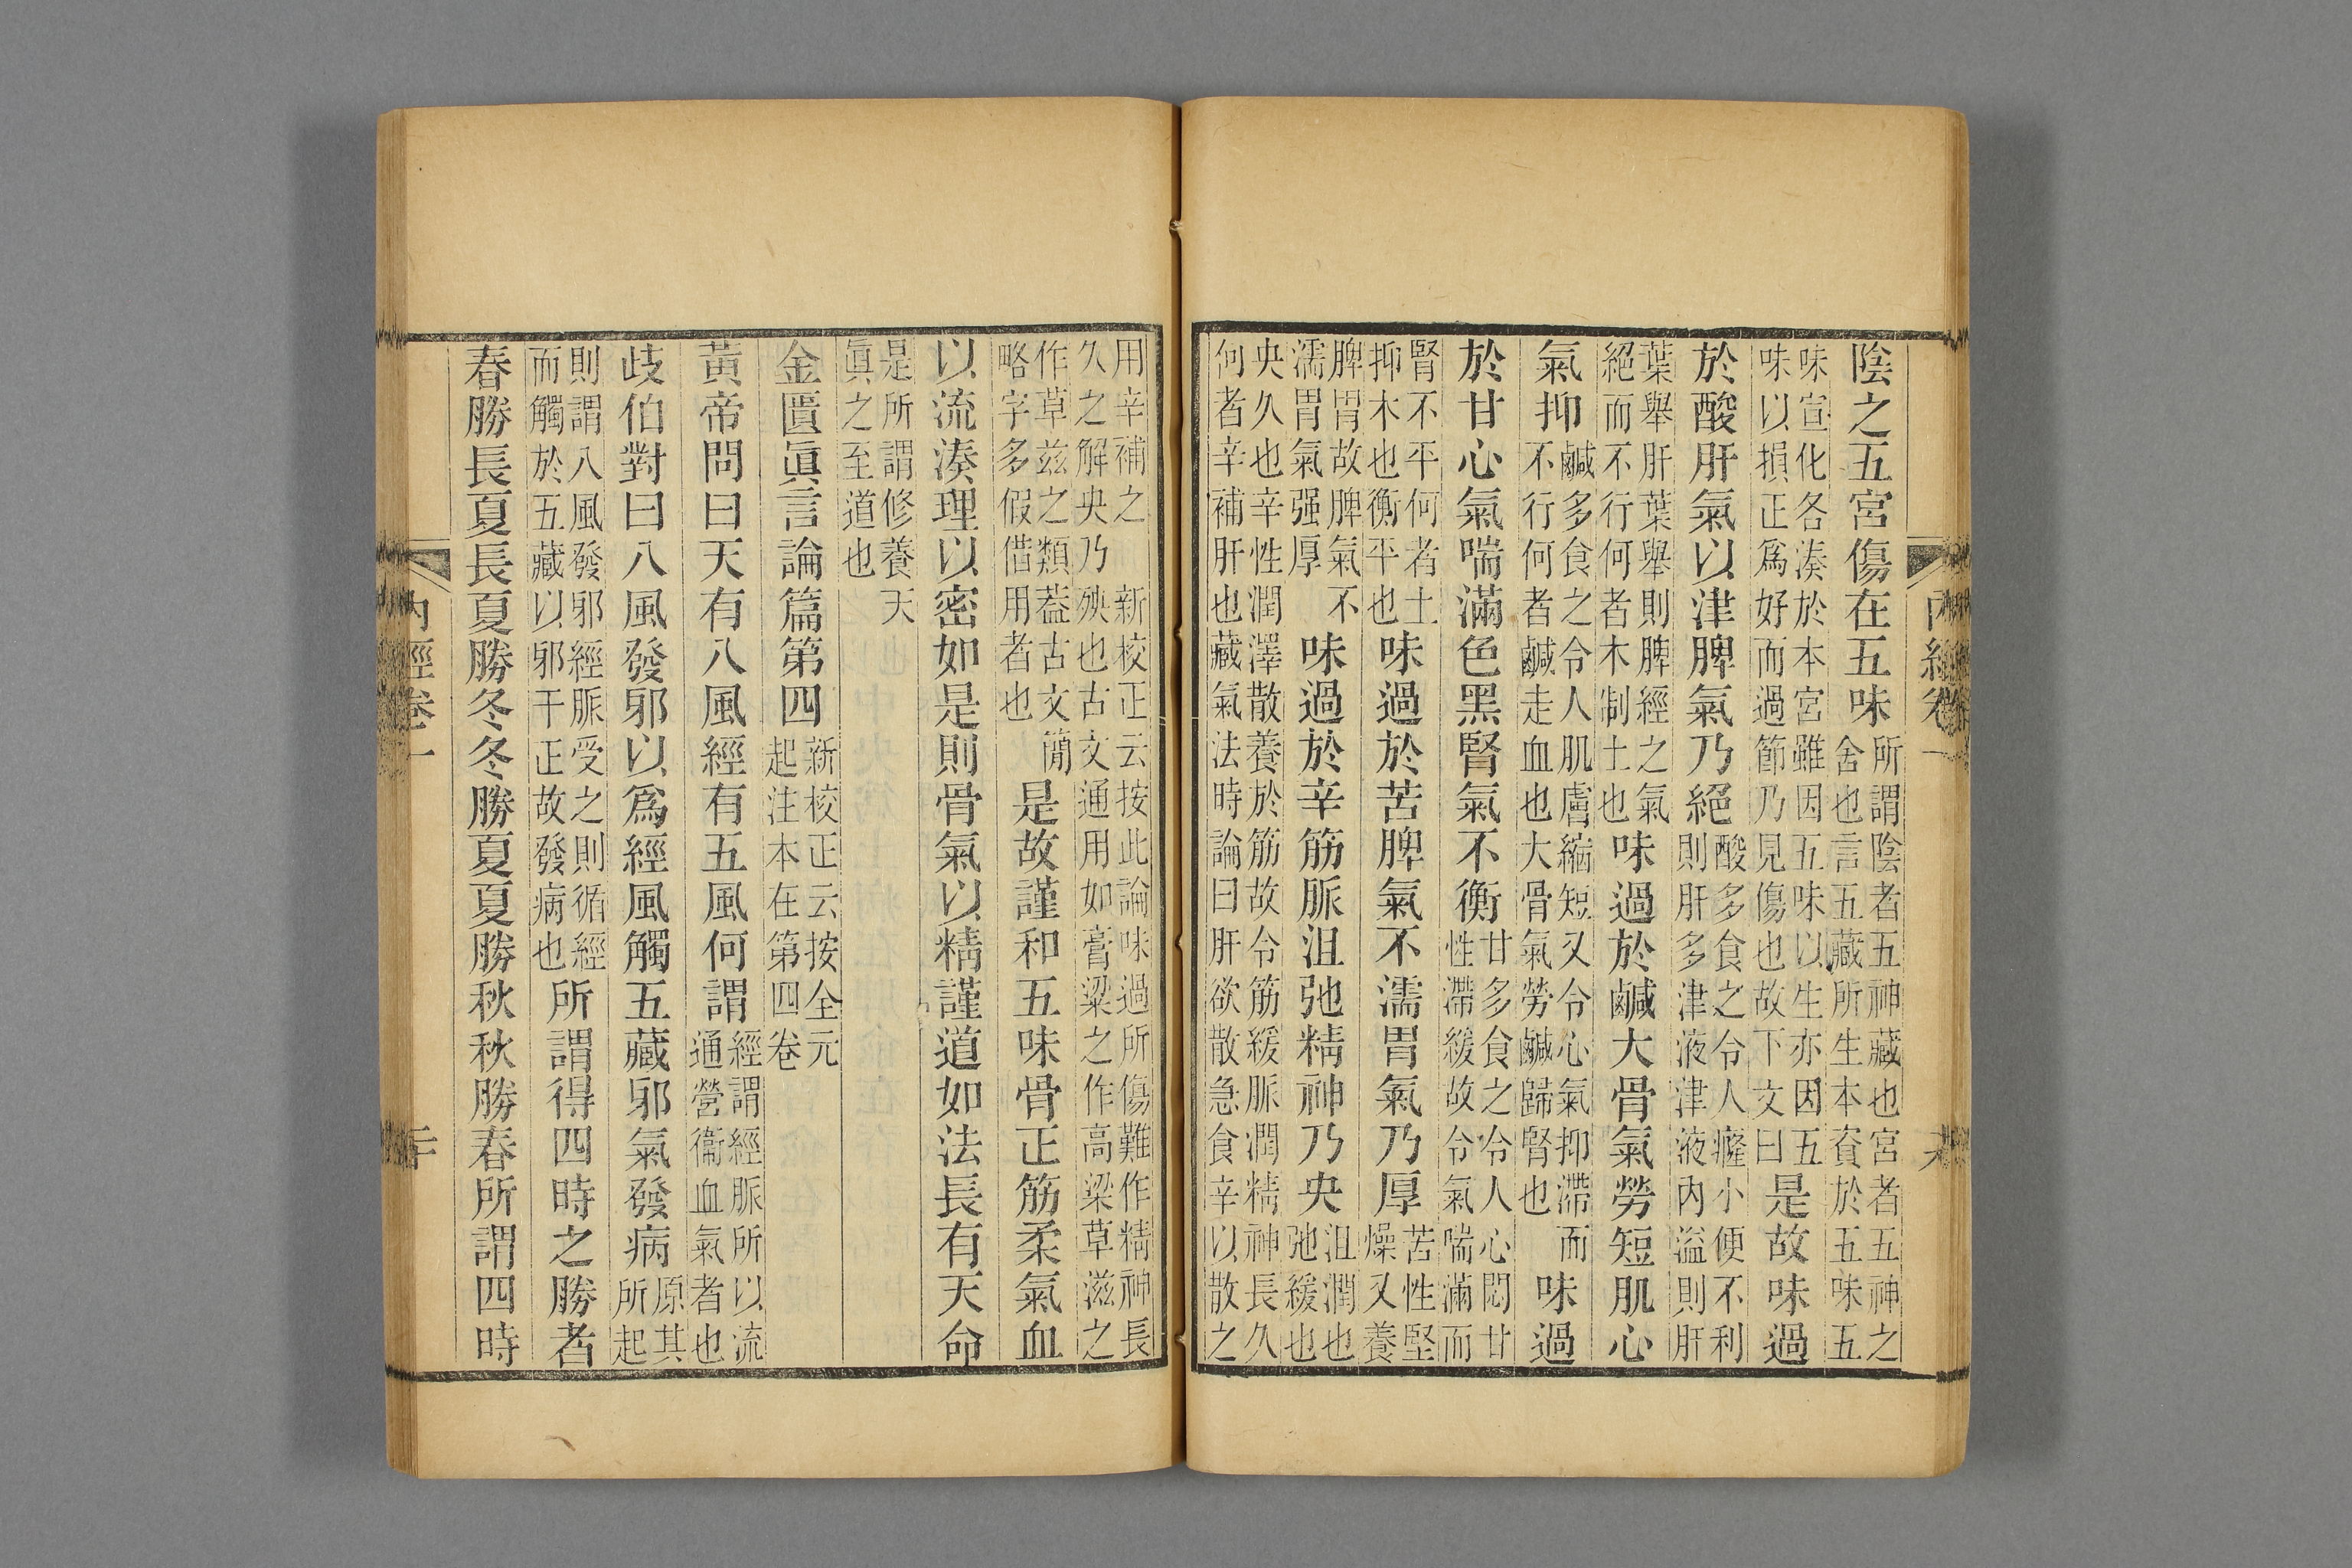 陰之五宮傷在五味所謂陰者五神藏也宮者五神之舍也言五藏所生本資於五味五
味宣化各湊於本宮雖因五味以生亦因五味以損正爲好而過節乃見傷也故下文曰是故味過
於酸肝氣以津脾氣乃絕酸多食之令人癃小便不利則肝多津液津液內溢則肝
葉舉肝葉舉則脾經之氣絕而不行何者木制土也味過於鹹大骨氣勞短肌心
氣抑鹹多食之令人肌膚縮短又令心氣抑滯而不行何者鹹走血也大骨氣勞鹹歸腎也味過
於甘心氣喘滿色黑腎氣不衡甘多食之令人心悶甘性滯緩故令氣喘滿而
腎不平何者土抑木也衡平也味過於苦脾氣不濡胃氣乃厚苦性堅燥又養
脾胃故脾氣不濡胃氣强厚味過於辛筋脈沮弛精神乃央沮潤也弛緩也
央久也辛性潤澤散養於筋故令筋緩脈潤精神長久何者辛補肝也藏氣法時論曰肝欲散急食辛以散之
用辛補之 新校正云按此論味過所傷難作精神長久之解央乃殃也古文通用如膏梁之作高梁草滋之
作草兹之類葢古文簡略字多假借用者也是故謹和五味骨正筋柔氣血
以流湊理以密如是則骨氣以精謹道如法長有天命
是所謂修養天眞之至道也
金匱眞言論篇第四新校正云按全元起注本在第四卷
黃帝問曰天有八風經有五風何謂經謂經脈所以流通營衞血氣者也
歧伯對曰八風發邪以爲經風觸五藏邪氣發病原其所起
則謂八風發邪經脈受之則循經而觸於五藏以邪干正故發病也所謂得四時之勝者
春勝長夏長夏勝冬冬勝夏夏勝秋秋勝春所謂四時
內經卷一
二十